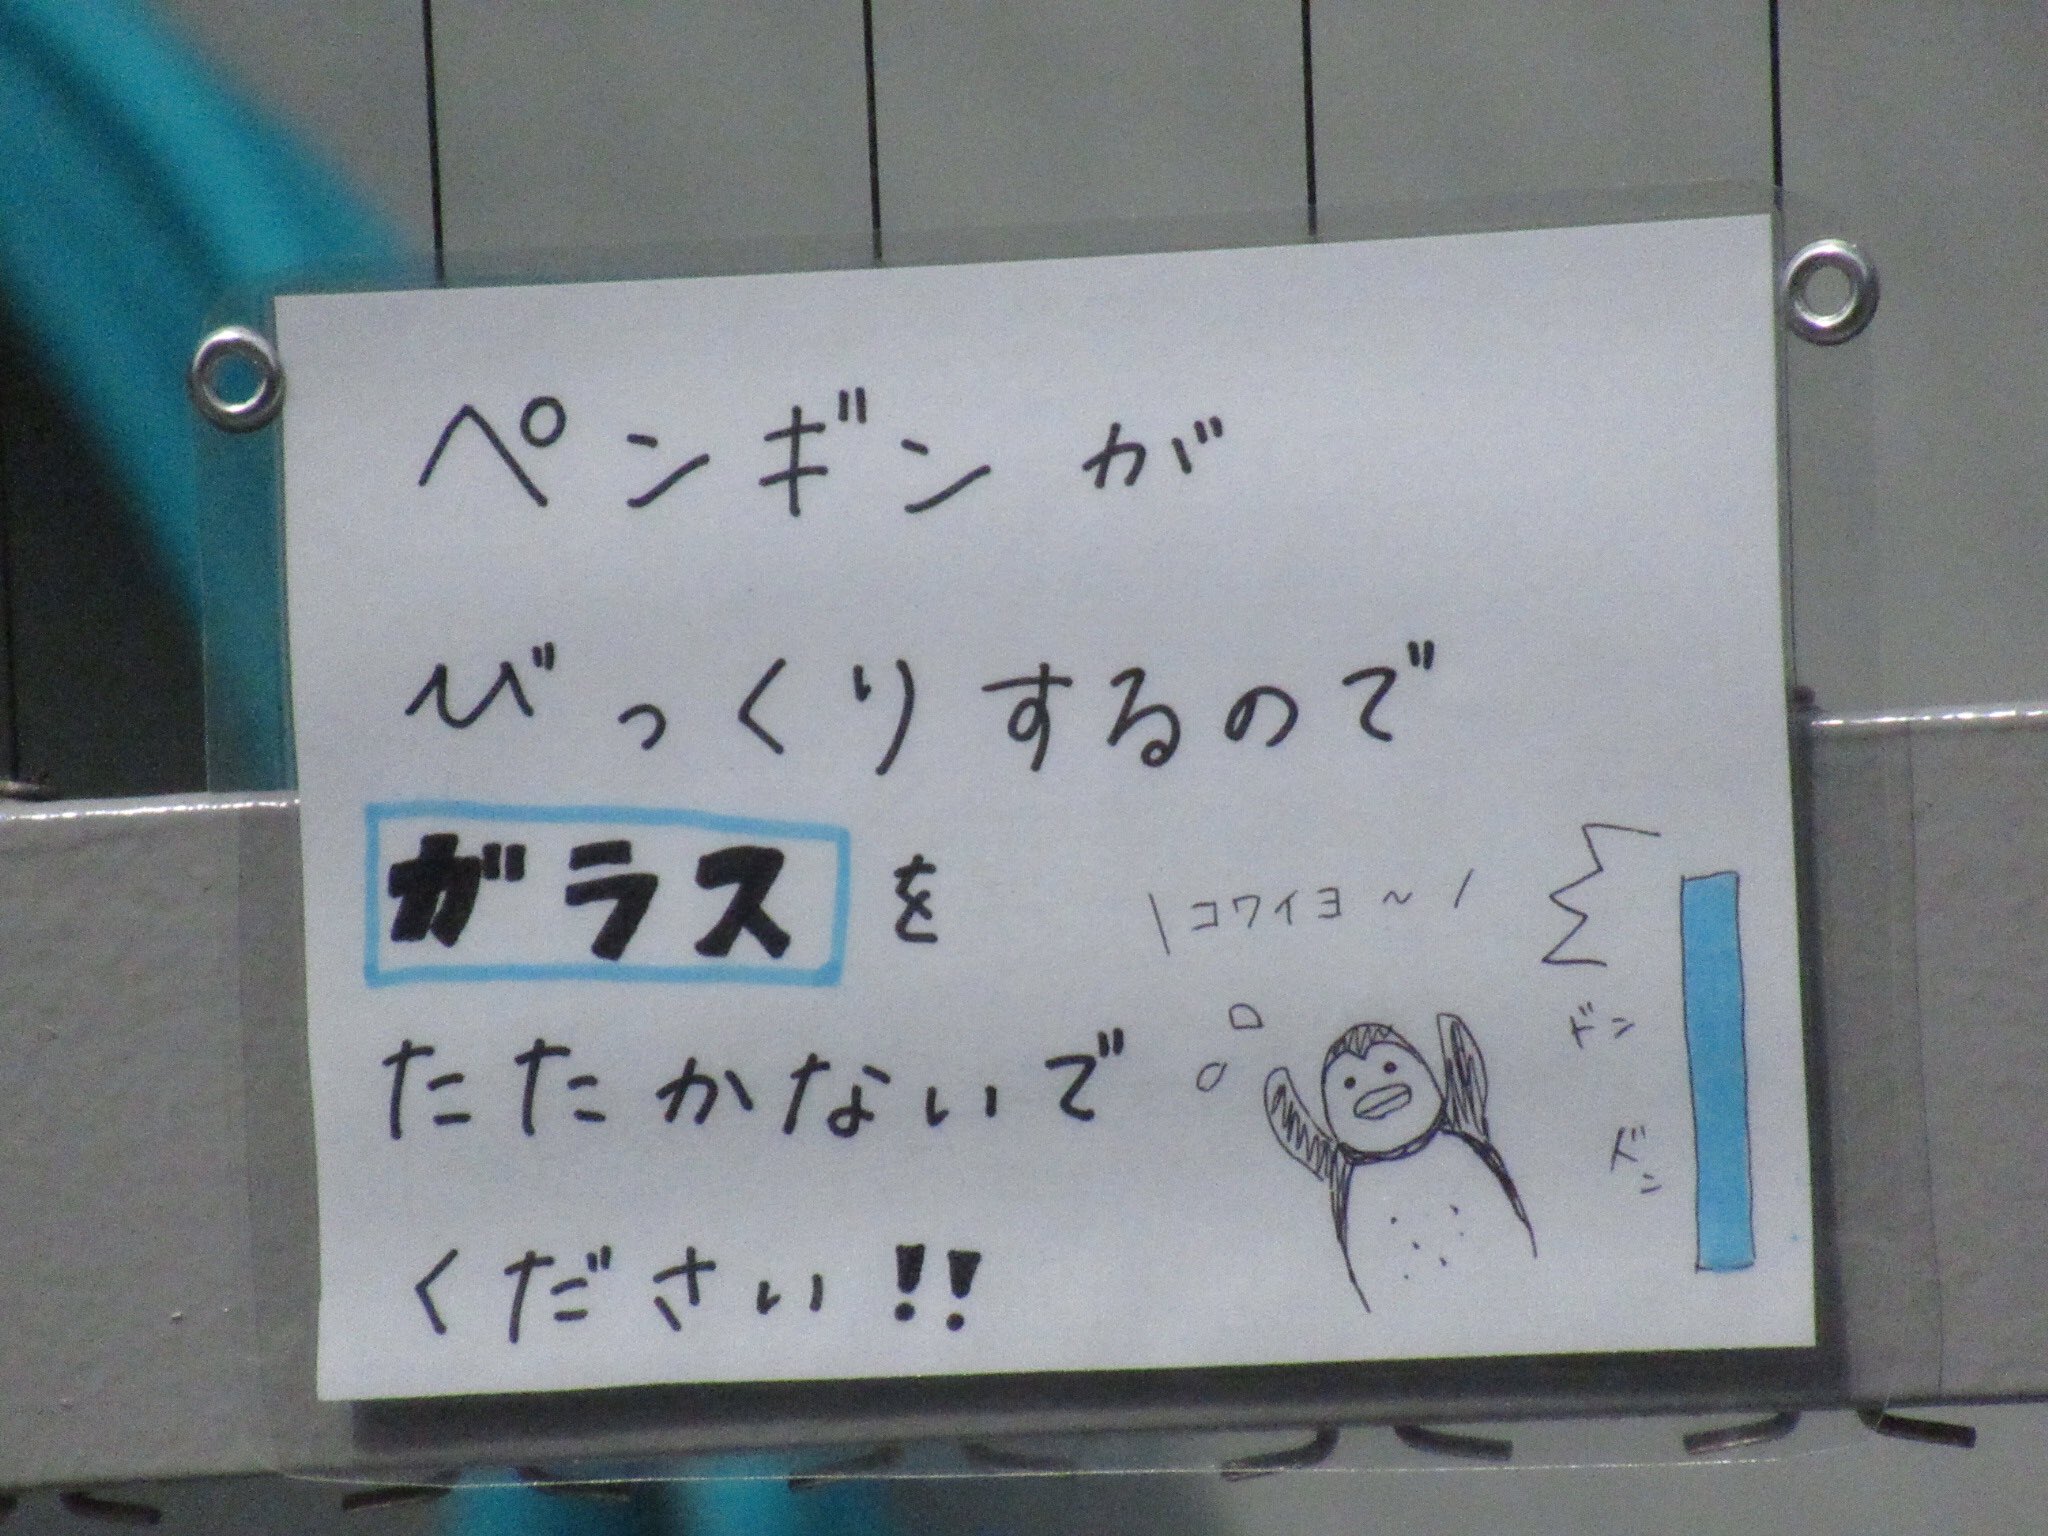 ペンギンが
びっくりするので
ガラスを
たたかないで
ください!!
\コワイヨ～/
ドン
ドン